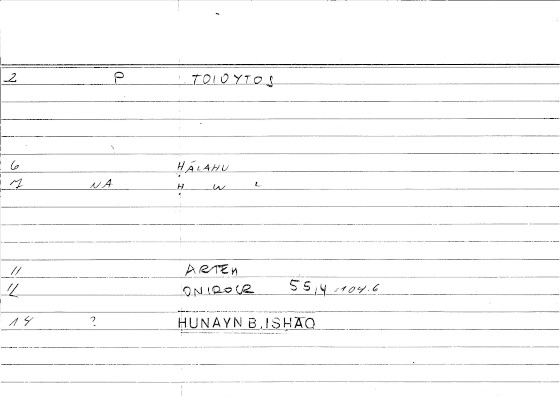 2 P TOIOYTOS
6 ḤĀLAHU
7 NA Ḥ W L
11 ARTEM
12 ONIROCR 55,4 -104.6
14 ? HUNAYN B. ISHĀQ